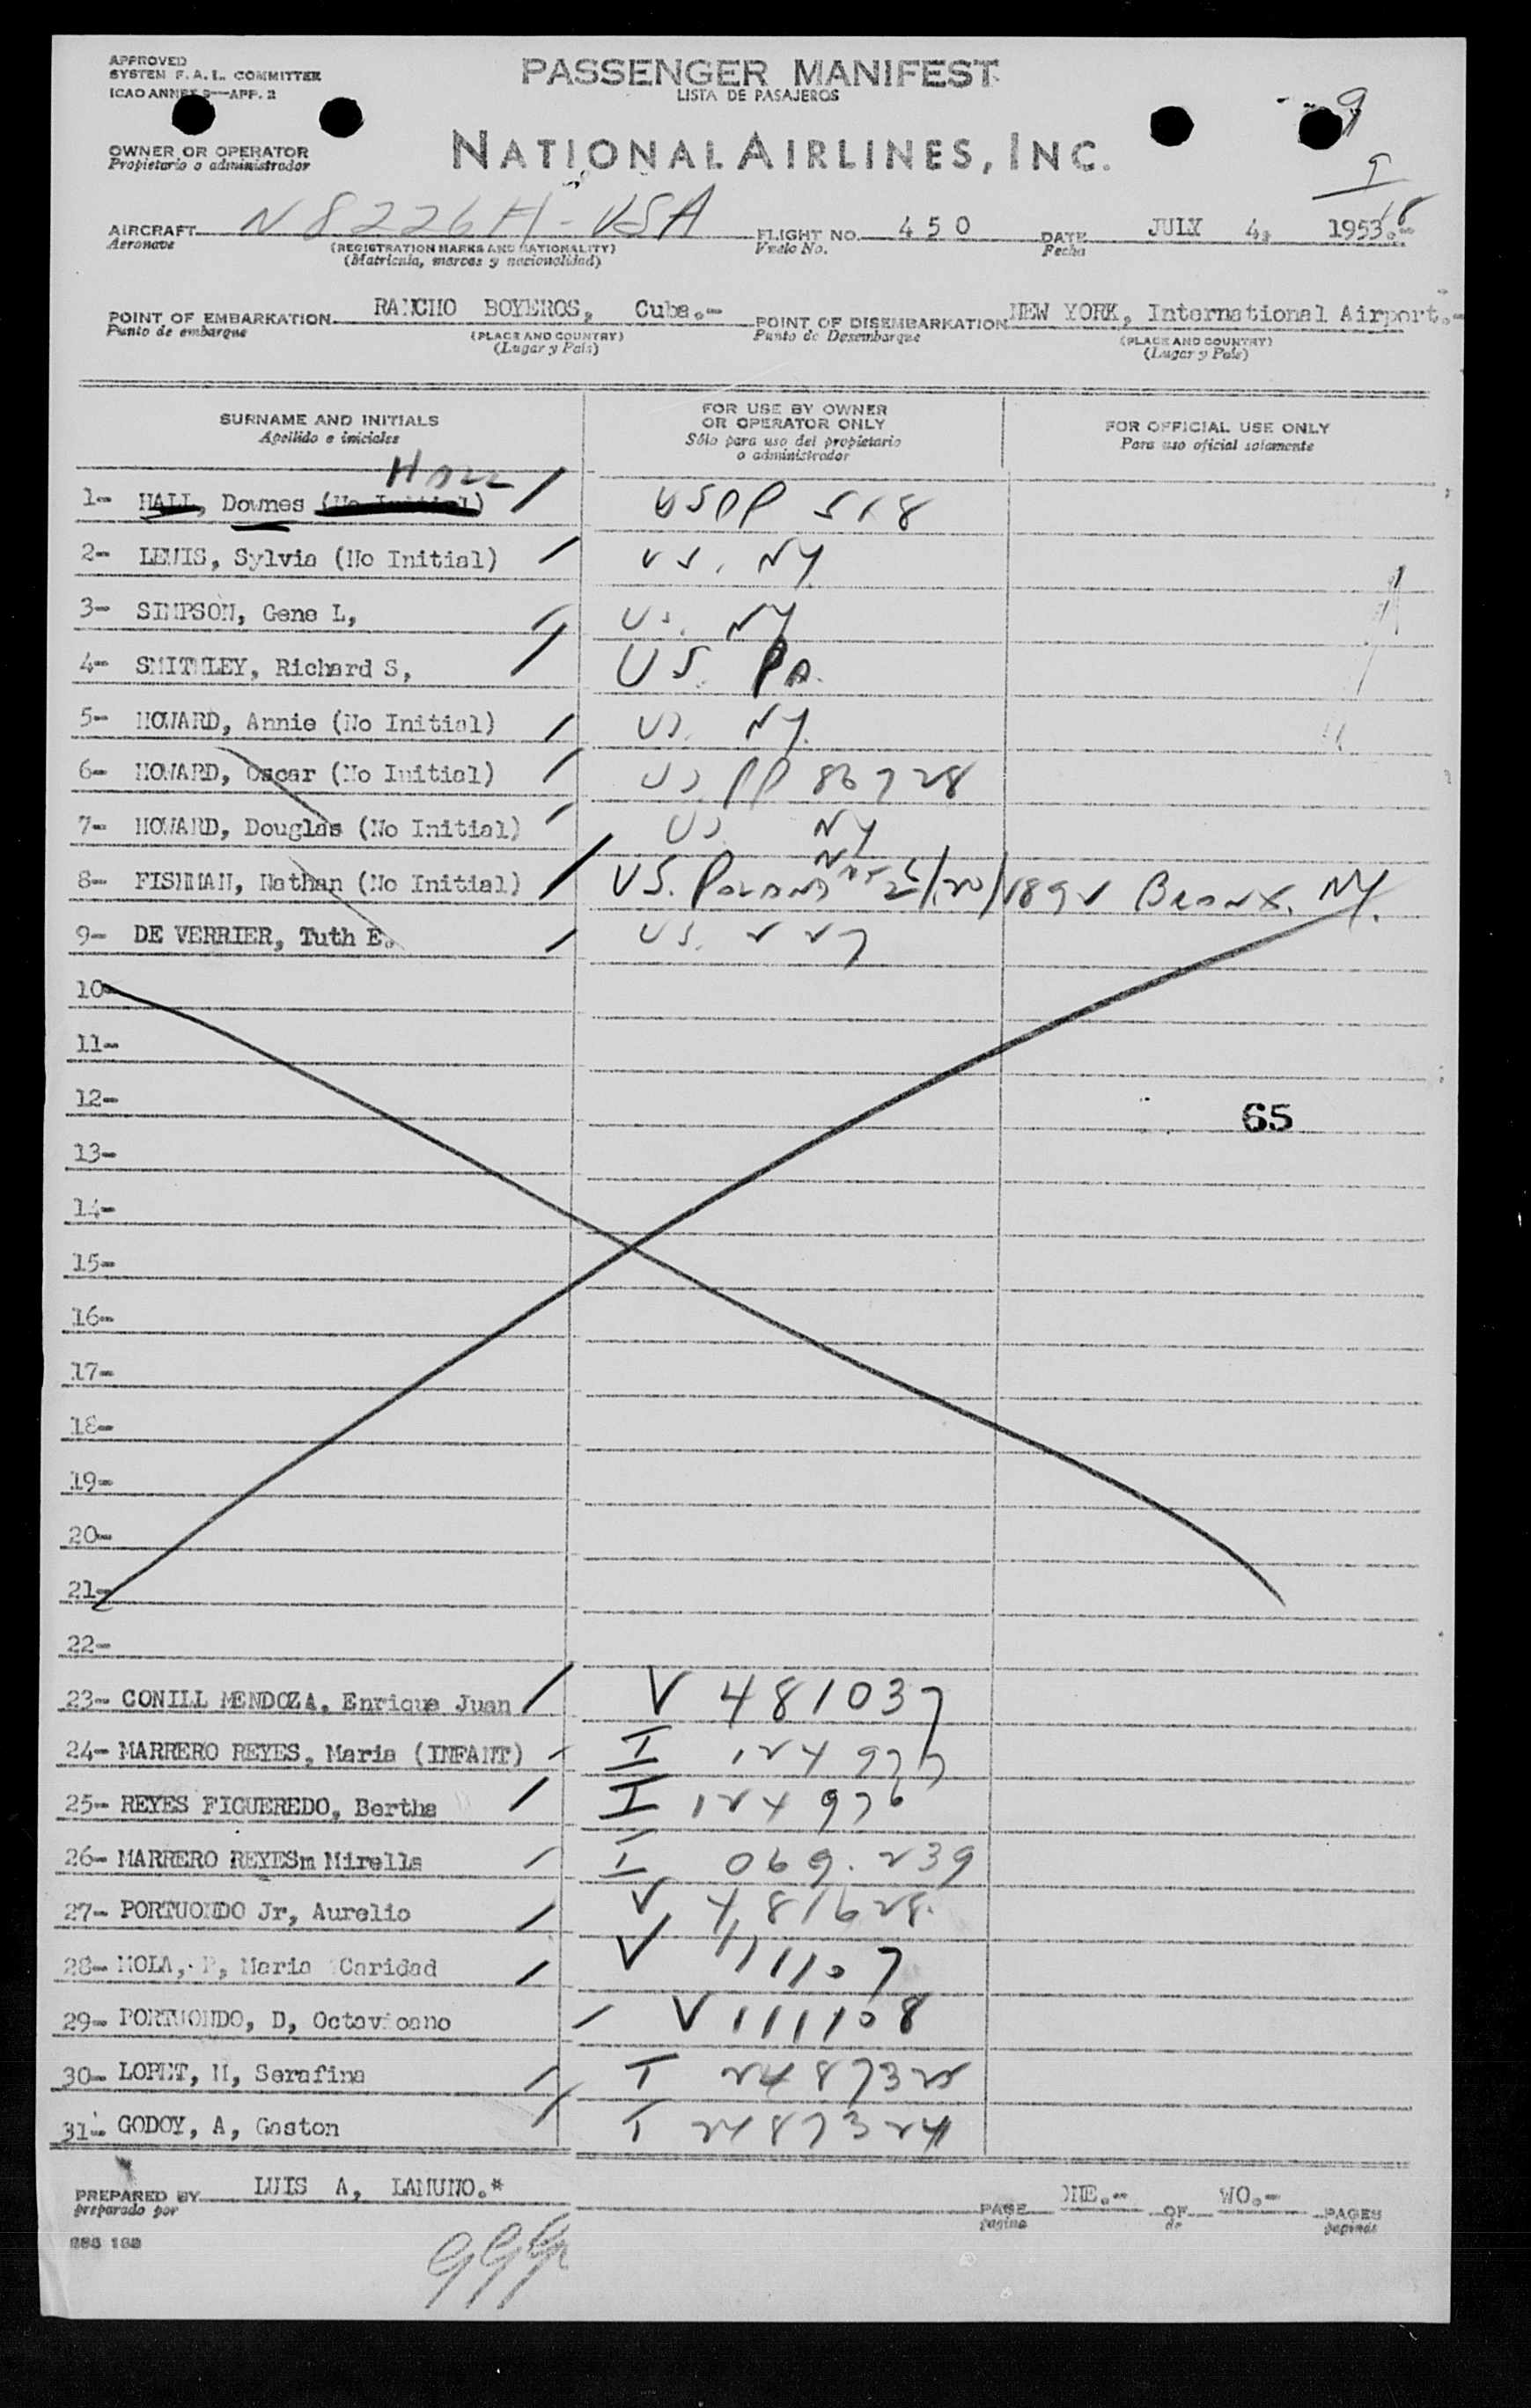 APPROVED
SYSTEM F.A.L. COMMITTEE
ICAO ANNEX 9—APP. 2
PASSENGER MANIFEST
LISTA DE PASAJEROS
9
OWNER OR OPERATOR
Propietario o administrador
NATIONAL AIRLINES, INC.
9
18
AIRCRAFT N8226H - USA FLIGHT NO. 450 DATE JULY 4, 1953.-
Aeronave (REGISTRATION MARKS AND NATIONALITY) Vuelo No. Fecha
(Matricula, marcas y nacionalidad)
POINT OF EMBARKATION RANCHO BOYEROS, Cuba.- POINT OF DISEMBARKATION NEW YORK, International Airport.-
Punto de embarque (PLACE AND COUNTRY) Punto de Desembarque (PLACE AND COUNTRY)
(Lugar y País) (Lugar y País)
SURNAME AND INITIALS FOR USE BY OWNER OR OPERATOR ONLY FOR OFFICIAL USE ONLY
Apellido e iniciales Sólo para uso del propietario o administrador Para uso oficial solamente
HALL
1- HALL, Downes (No Initial) / USPP 518
2- LEWIS, Sylvia (No Initial) / US. NY
3- SIMPSON, Gene L, / US. NY
4- SMITHLEY, Richard S, / US. PA.
5- HOWARD, Annie (No Initial) / US. NY.
6- HOWARD, Oscar (No Initial) / US. PP 86728
7- HOWARD, Douglas (No Initial) / US NY
8- FISHMAN, Nathan (No Initial) / US. POLAND 1892 Bronx. NY.
9- DE VERRIER, Tuth E. / US.
10-
11-
12-
65
13-
14-
15-
16-
17-
18-
19-
20-
21-
22-
23- CONILL MENDOZA, Enrique Juan / V 481037
24- MARRERO REYES, Maria (INFANT) / I 124977
25- REYES FIGUEREDO, Bertha / I 124976
26- MARRERO REYESm Mirella / I 069.239
27- PORTUONDO Jr, Aurelio / V 481628.
28- MOLA, P, Maria Caridad / V 111107
29- PORTUONDO, D, Octavioano / V 111108
30- LOPET, M, Serafina / I
31- GODOY, A, Gaston / I 2487324
PREPARED BY LUIS A, LAMUNO.* PAGE ONE.- OF WO.- PAGES
preparado por pagina de paginas